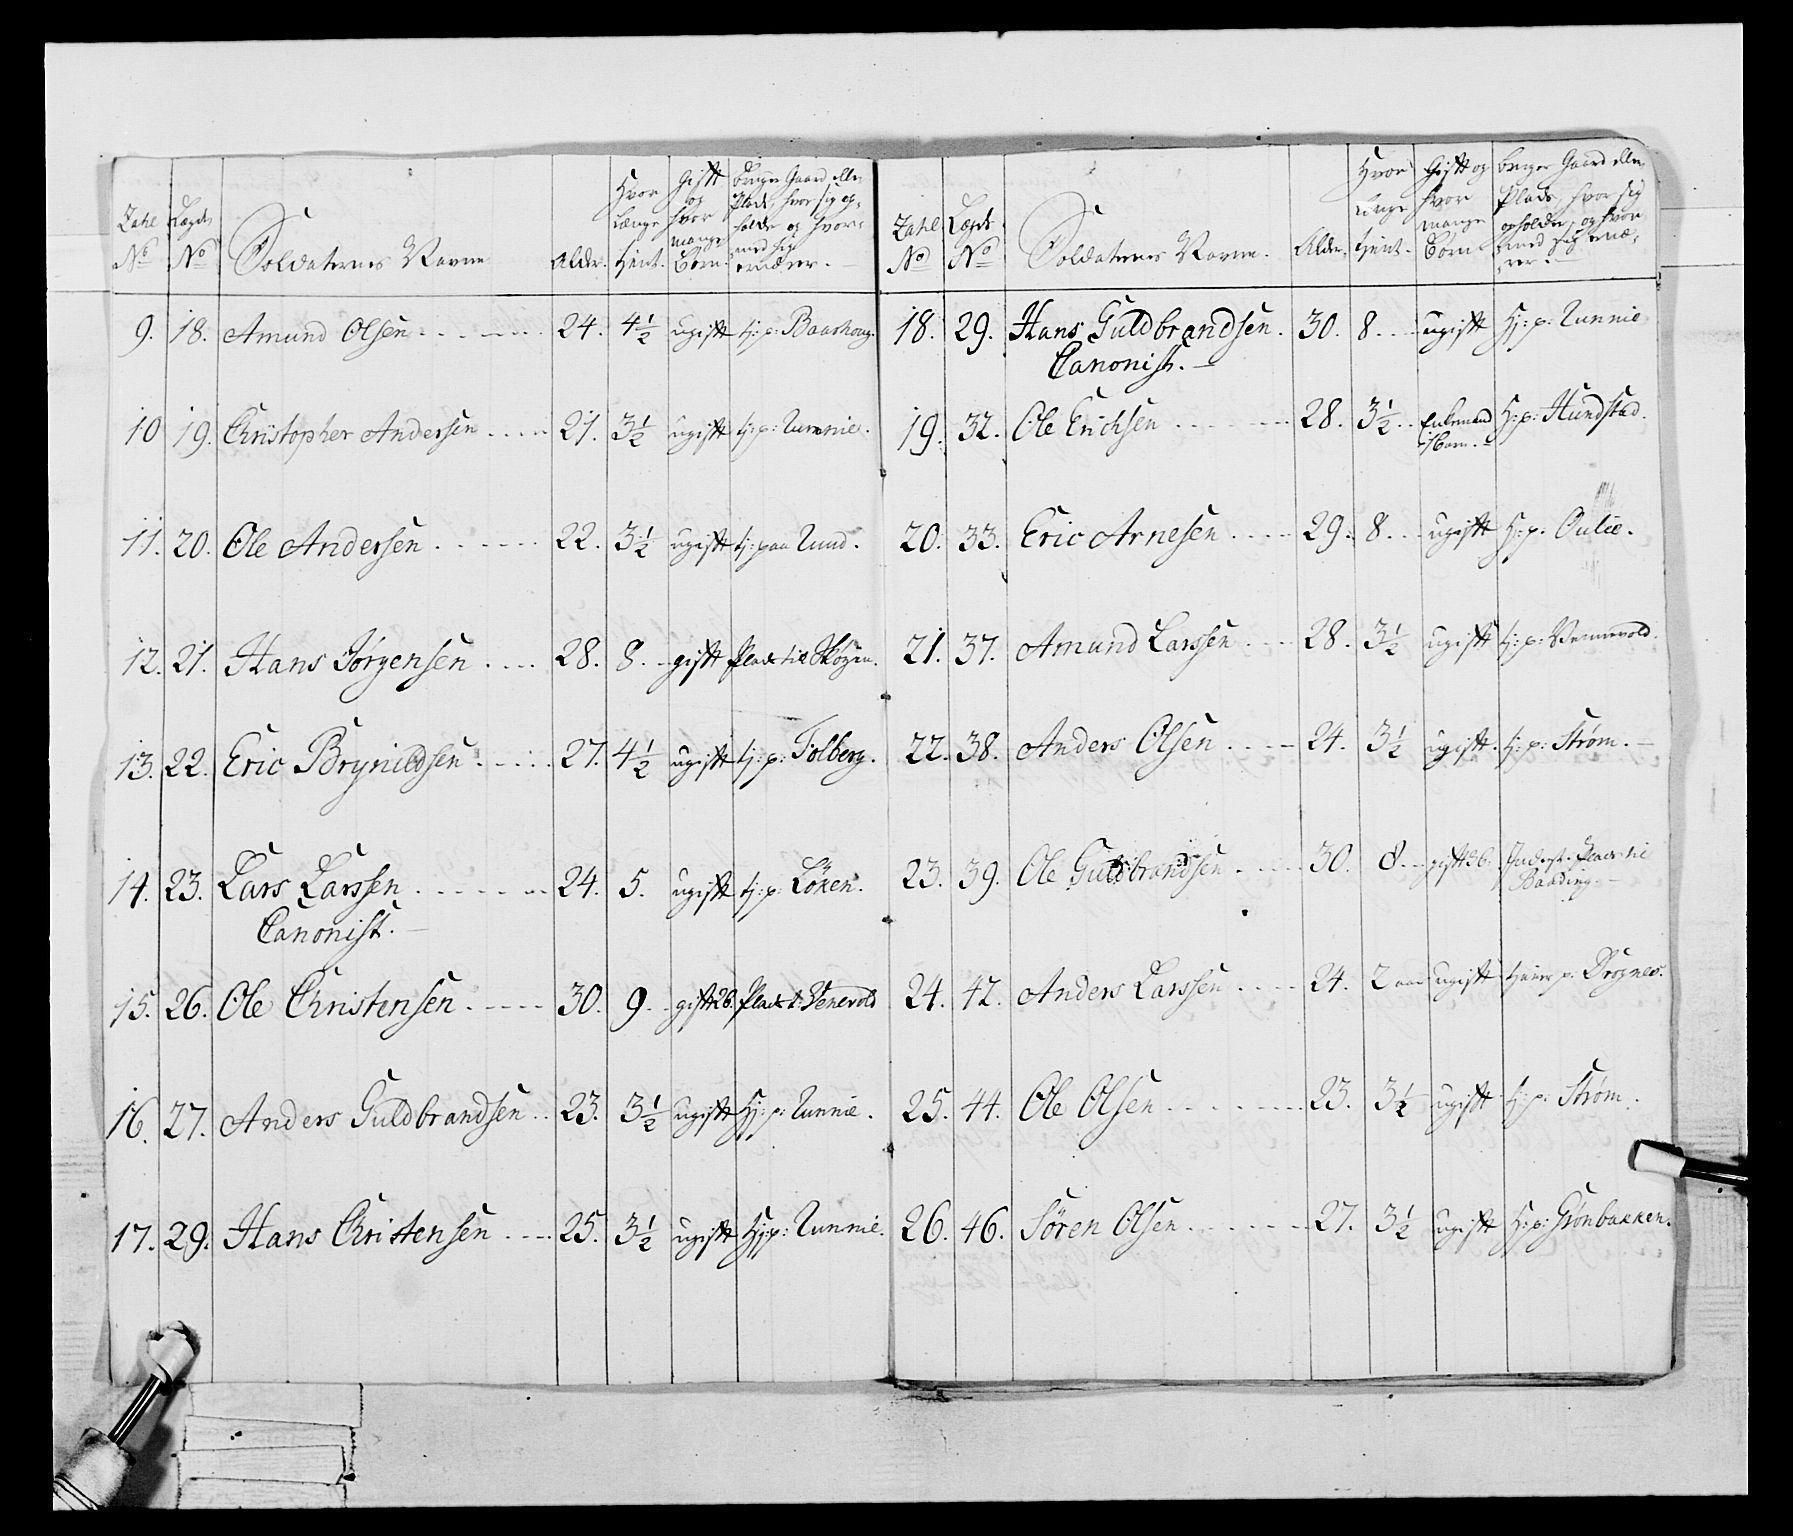 Zahl No
Lægds No
Soldaternes Navne
Alder.
Hvor Længe tient.
Gift og hvor mange Børn.
bruger Gaard eller Plads, hvor sig opholder og hvormed sig ernærer.
9. 18. Amund Olsen 24. 4 1/2 ugift tj: p:
10 19. Christopher Andersen 21. 3 1/2 ugift tj: p: Runnie.
11. 20. Ole Andersen 22. 3 1/2 ugift tj: paa Rund.
12. 21. Hans Jørgensen 28. 8. gift Plads til Skøyen.
13. 22. Eric Brynildsen 27. 4 1/2 ugift tj: p: Folberg.
14. 23. Lars Larssen 24. 5. ugift tj: p: Löken.
Canonist.
15. 26. Ole Christensen 30. 9 gift 2b. Plads t. Venevold
16. 27. Anders Guldbrandsen 23. 3 1/2 ugift tj: p: Runnie.
17. 29. Hans Christensen 25. 3 1/2 ugift tj: p: Runnie.
Zahl No
Lægds No
Soldaternes Navne.
Alder.
Hvor længe tient.
Gift og hvor mange Børn
bruger Gaard eller Plads, hvor sig opholder, og hvor med sig ernærer.
18. 29. Hans Guldbrandsen. 30. 8. ugift tj: p: Runnie
Canonist.
19. 32. Ole Erichsen 28. 3 1/2 Enkemand 1 Barn. tj: p: Hundstad.
20. 33. Eric Arnesen 29. 8. ugift tj: p. Oulie.
21. 37. Amund Larssen 28. 3 1/2 ugift tj: p: Vennevold.
22. 38. Anders Olsen 24. 3 1/2 ugift. tj: p: Strøm.
23. 39. Ole Guldbrandsen 30. 8. gift 2b. Inderst. Plads til
Baading.
24. 42. Anders Larssen 24. 2 aar ugift p: Drognes.
25. 44. Ole Olsen 23. 3 1/2 ugift tj: p: Strøm.
26. 46. Sören Olsen 27. 3 1/2 ugift tj: p: Grönbakken.